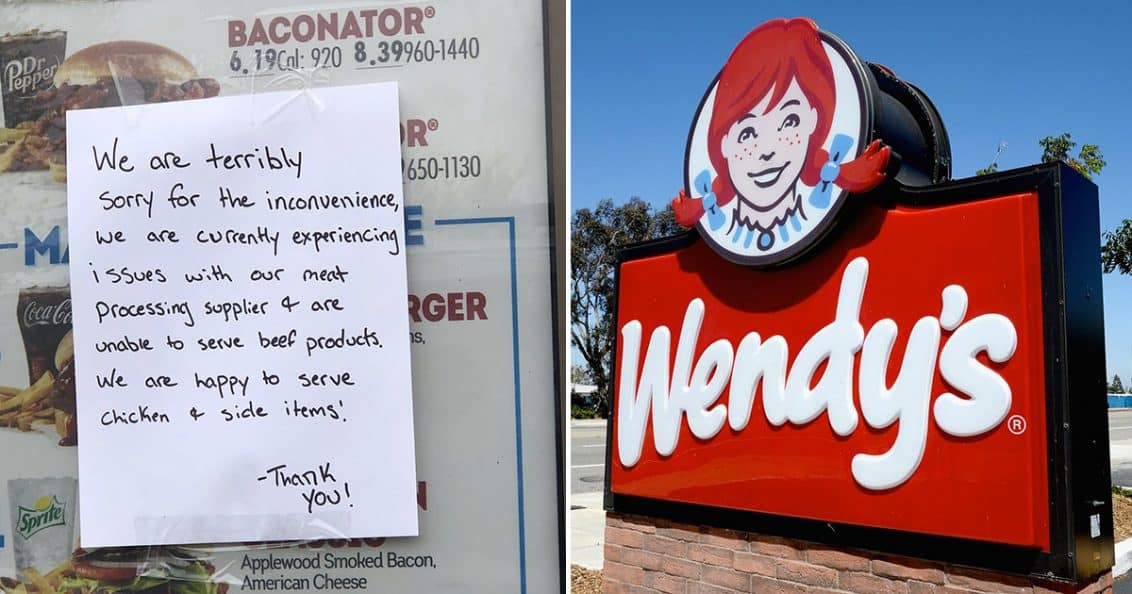 BACONATOR®
6.19 Cal: 920 8.39 960-1440
Dr Pepper
R®
650-1130
We are terribly
sorry for the inconvenience,
we are currently experiencing
issues with our meat
processing supplier & are
unable to serve beef products.
We are happy to serve
chicken & side items!
-Thank
you!
MA
E
RGER
ns,
Coca-Co
Sprite
Applewood Smoked Bacon,
American Cheese
Wendy's®